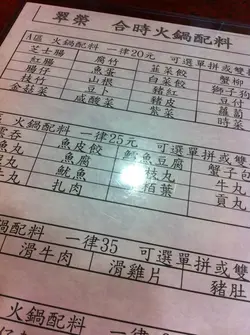 翠榮 合時火鍋配料
A區 火鍋配料 一律20元 可選單拼或雙
芝士腸 腐竹 韮菜餃 蟹柳
紅腸 魚蛋 菜肉餃 獅子狗
腸仔 山根 白菜餃 豆付
枝竹 豆卜 豬紅 蘿蔔
金菇菜 咸酸菜 豬皮 時菜
紫菜
火鍋配料 一律25元 可選單拼或雙
雲吞 魚皮餃 豆腐 蟹子包
魚丸 魚腐 枝丸 牛丸
丸 魷魚 栢葉 貢丸
丸 扎肉
鍋配料 一律35 可選單拼或雙
滑牛肉 滑雞片 豬肚
火鍋配料